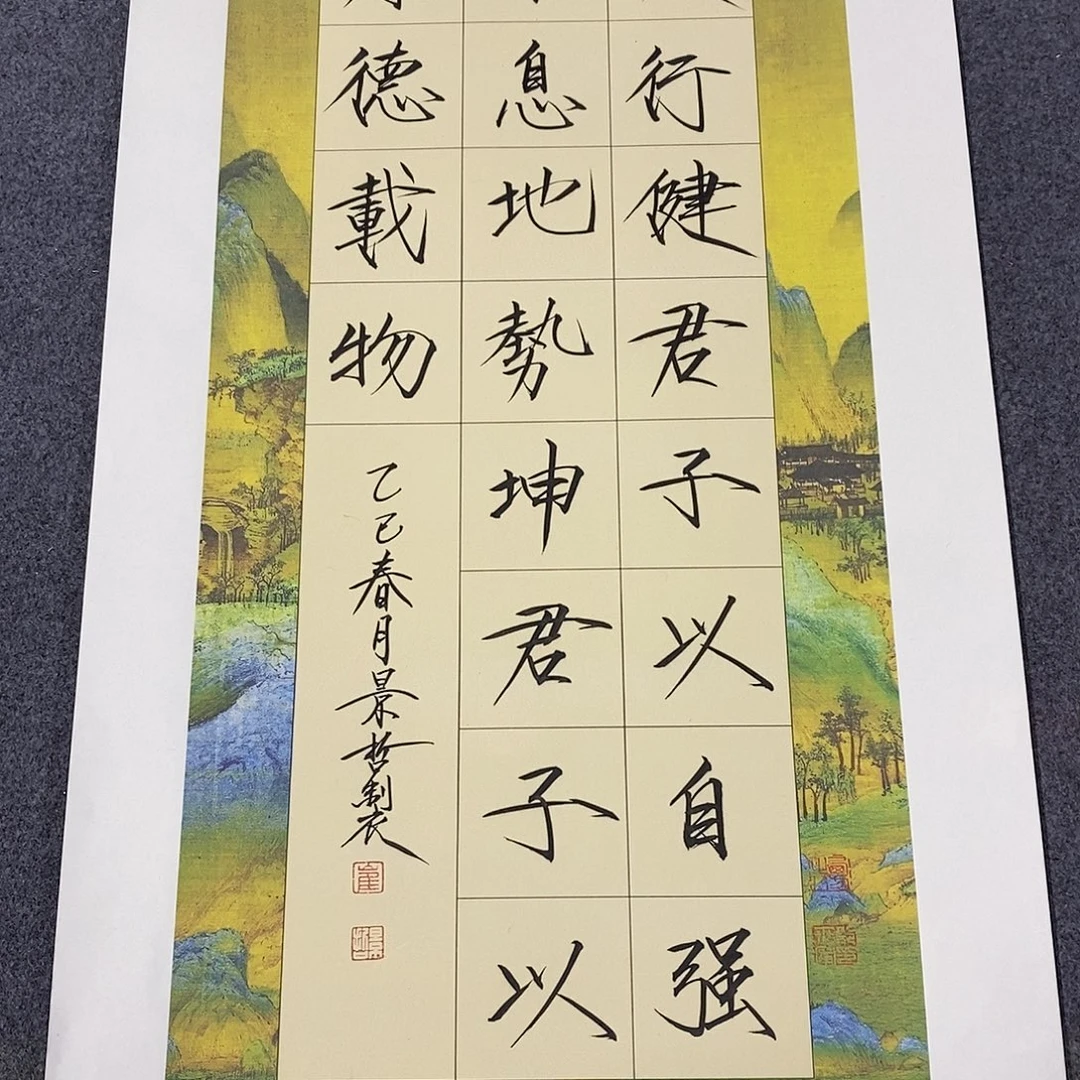 行健君子以自强
息地勢坤君子以
德載物
乙巳春月景哲製